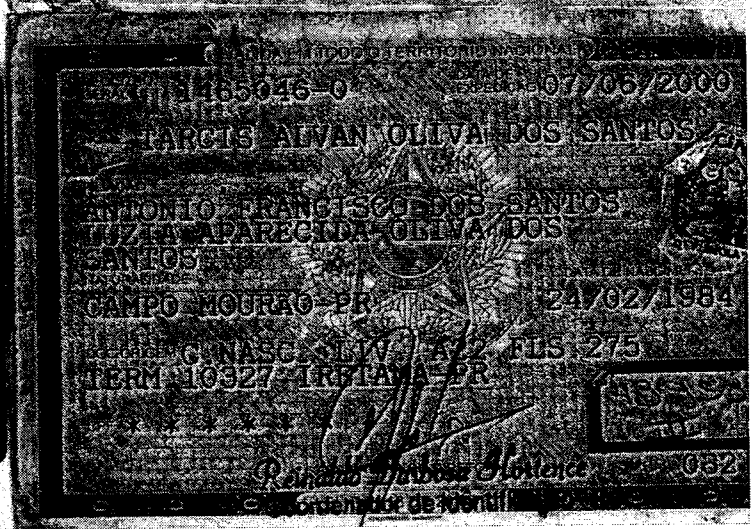 TODO O TERRITÓRIO NACIONAL
1465046-0 07/06/2000
TARCIS ALVAN OLIVA DOS SANTOS
ANTONIO FRANCISCO DOS SANTOS
LUZIA APARECIDA OLIVA DOS
SANTOS
CAMPO MOURAO-PR 24/02/1984
C NASC. LIV. A12 FLS 275
TERM 10327 IRETAMA-PR
* * * * * *
Reinaldo Barbosa Hortence
Coordenador de Identif